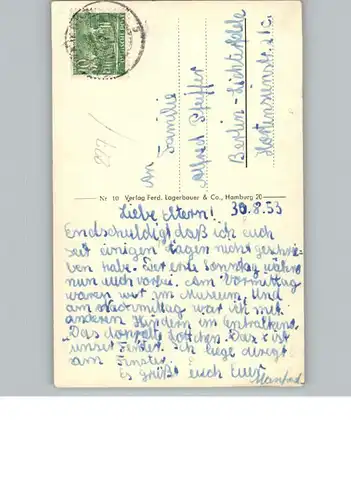 An
Familie
Alfred Pfeiffer
Berlin-Lichterfelde
Hortensienstr.
227/
Nr. 10 Verlag Ferd. Lagerbauer & Co., Hamburg 20
Liebe Eltern! 30.8.53
Endschuldigt daß ich euch
seit einigen Tagen nicht geschrie-
ben habe. Der erste Sonntag wäre
nun auch vorbei. Am Vormittag
waren wir im Museum, und
am Nachmittag war ich mit
anderen Kindern im
"Das doppelte Lottchen. Das x ist
unser Fenster. Ich liege direkt
am Fenster.
Es grüßt euch Euer
Manfred